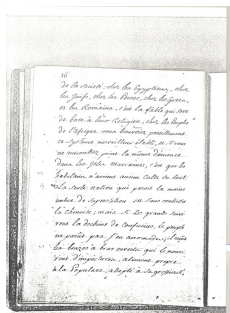 16
de la Société; chez les Egyptiens, chez
les Juifs, chez les Perses, chez les Grecs,
et les Romains, c'est la fable qui sert
de base à leur Religion; chez les Peuples
de l'Afrique vous trouverez pareillement
ce système merveilleux établi, et si vous
ne rencontrez point la même démence
dans les Isles Mariannes, c'est que les
habitans n'avoient aucun culte du tout.
La seule nation qui paroit la moins
imbue de Superstition est sans contredit
la chinoise; mais si les grands suivi
rent la doctrine de confucius, le peuple
ne s'en
les bonzes à bras ouverts qui le pour
d'impostures, aliment propre
à la Populace, adapté à sa grossiereté,